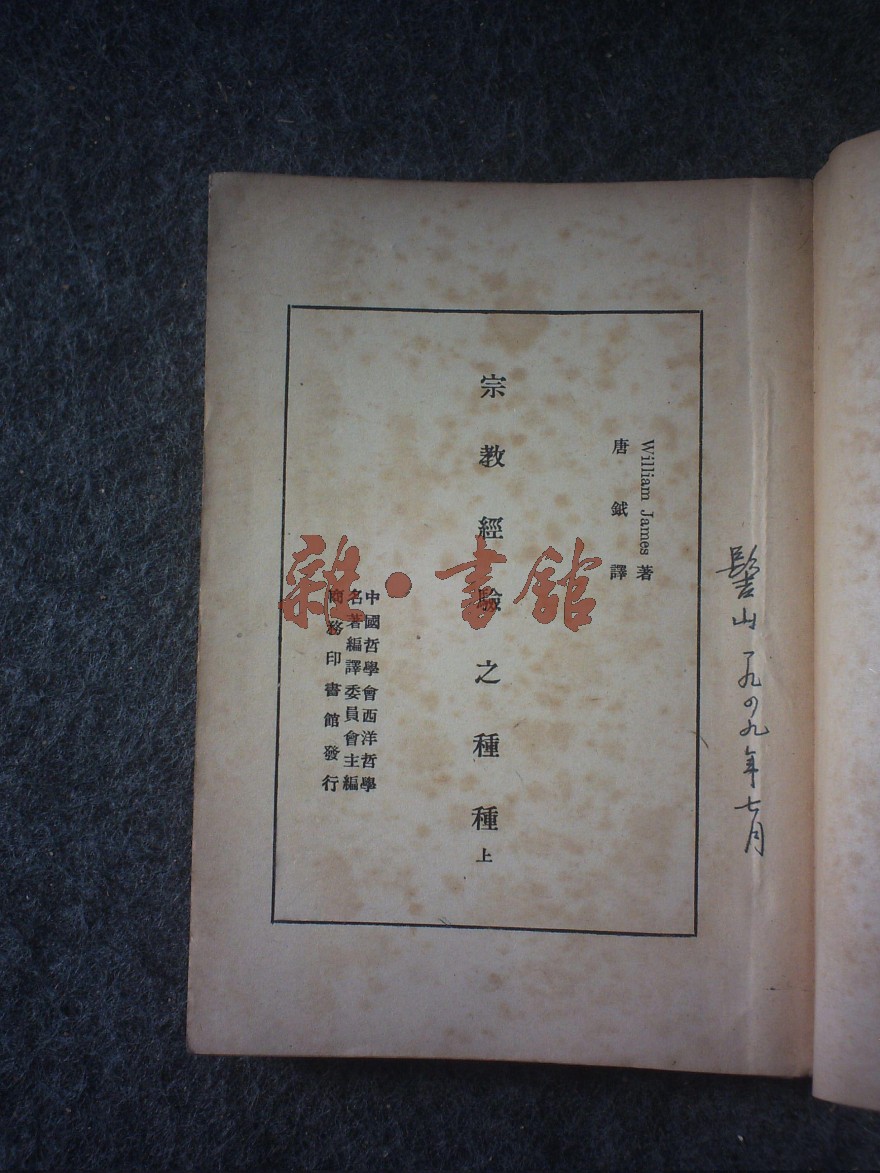 William James 著
唐鉞譯
宗教經驗之種種 上
中國哲學會西洋哲學
名著編譯委員會主編
商務印書館發行
山 一九四九年七月
雜·書館